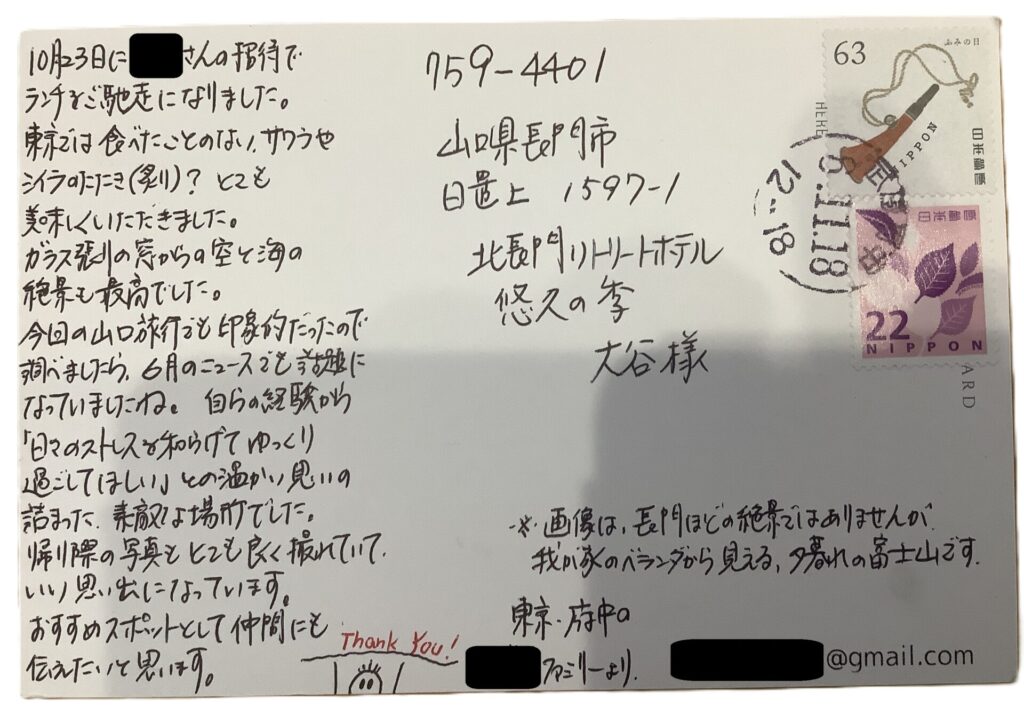 10月23日に
さんの招待で
ランチをご馳走になりました。
東京では食べたことのない、サワラや
シイラのたたき(炙り)? とても
美味しくいただきました。
ガラス張りの窓からの空と海の
絶景も最高でした。
今回の山口旅行でも印象的だったので
調べましたら、6月のニュースでも話題に
なっていましたね。 自らの経験から
「日々のストレスを和らげてゆっくり
過ごしてほしい」との温かい思いの
詰まった、素敵な場所でした。
帰り際の写真もとても良く撮れていて、
いい思い出になっています。
おすすめスポットとして仲間にも
伝えたいと思います。
Thank You!
759-4401
山口県長門市
日置上 1597-1
北長門リトリートホテル
悠久の季
大谷様
※画像は、長門ほどの絶景ではありませんが、
我が家のベランダから見える、夕暮れの富士山です。
東京・府中の
ファミリーより.
@gmail.com
63
ふみの日
NIPPON
日本郵便
HERE
8.11.18
12-18
日本郵便
22
NIPPON
ARD